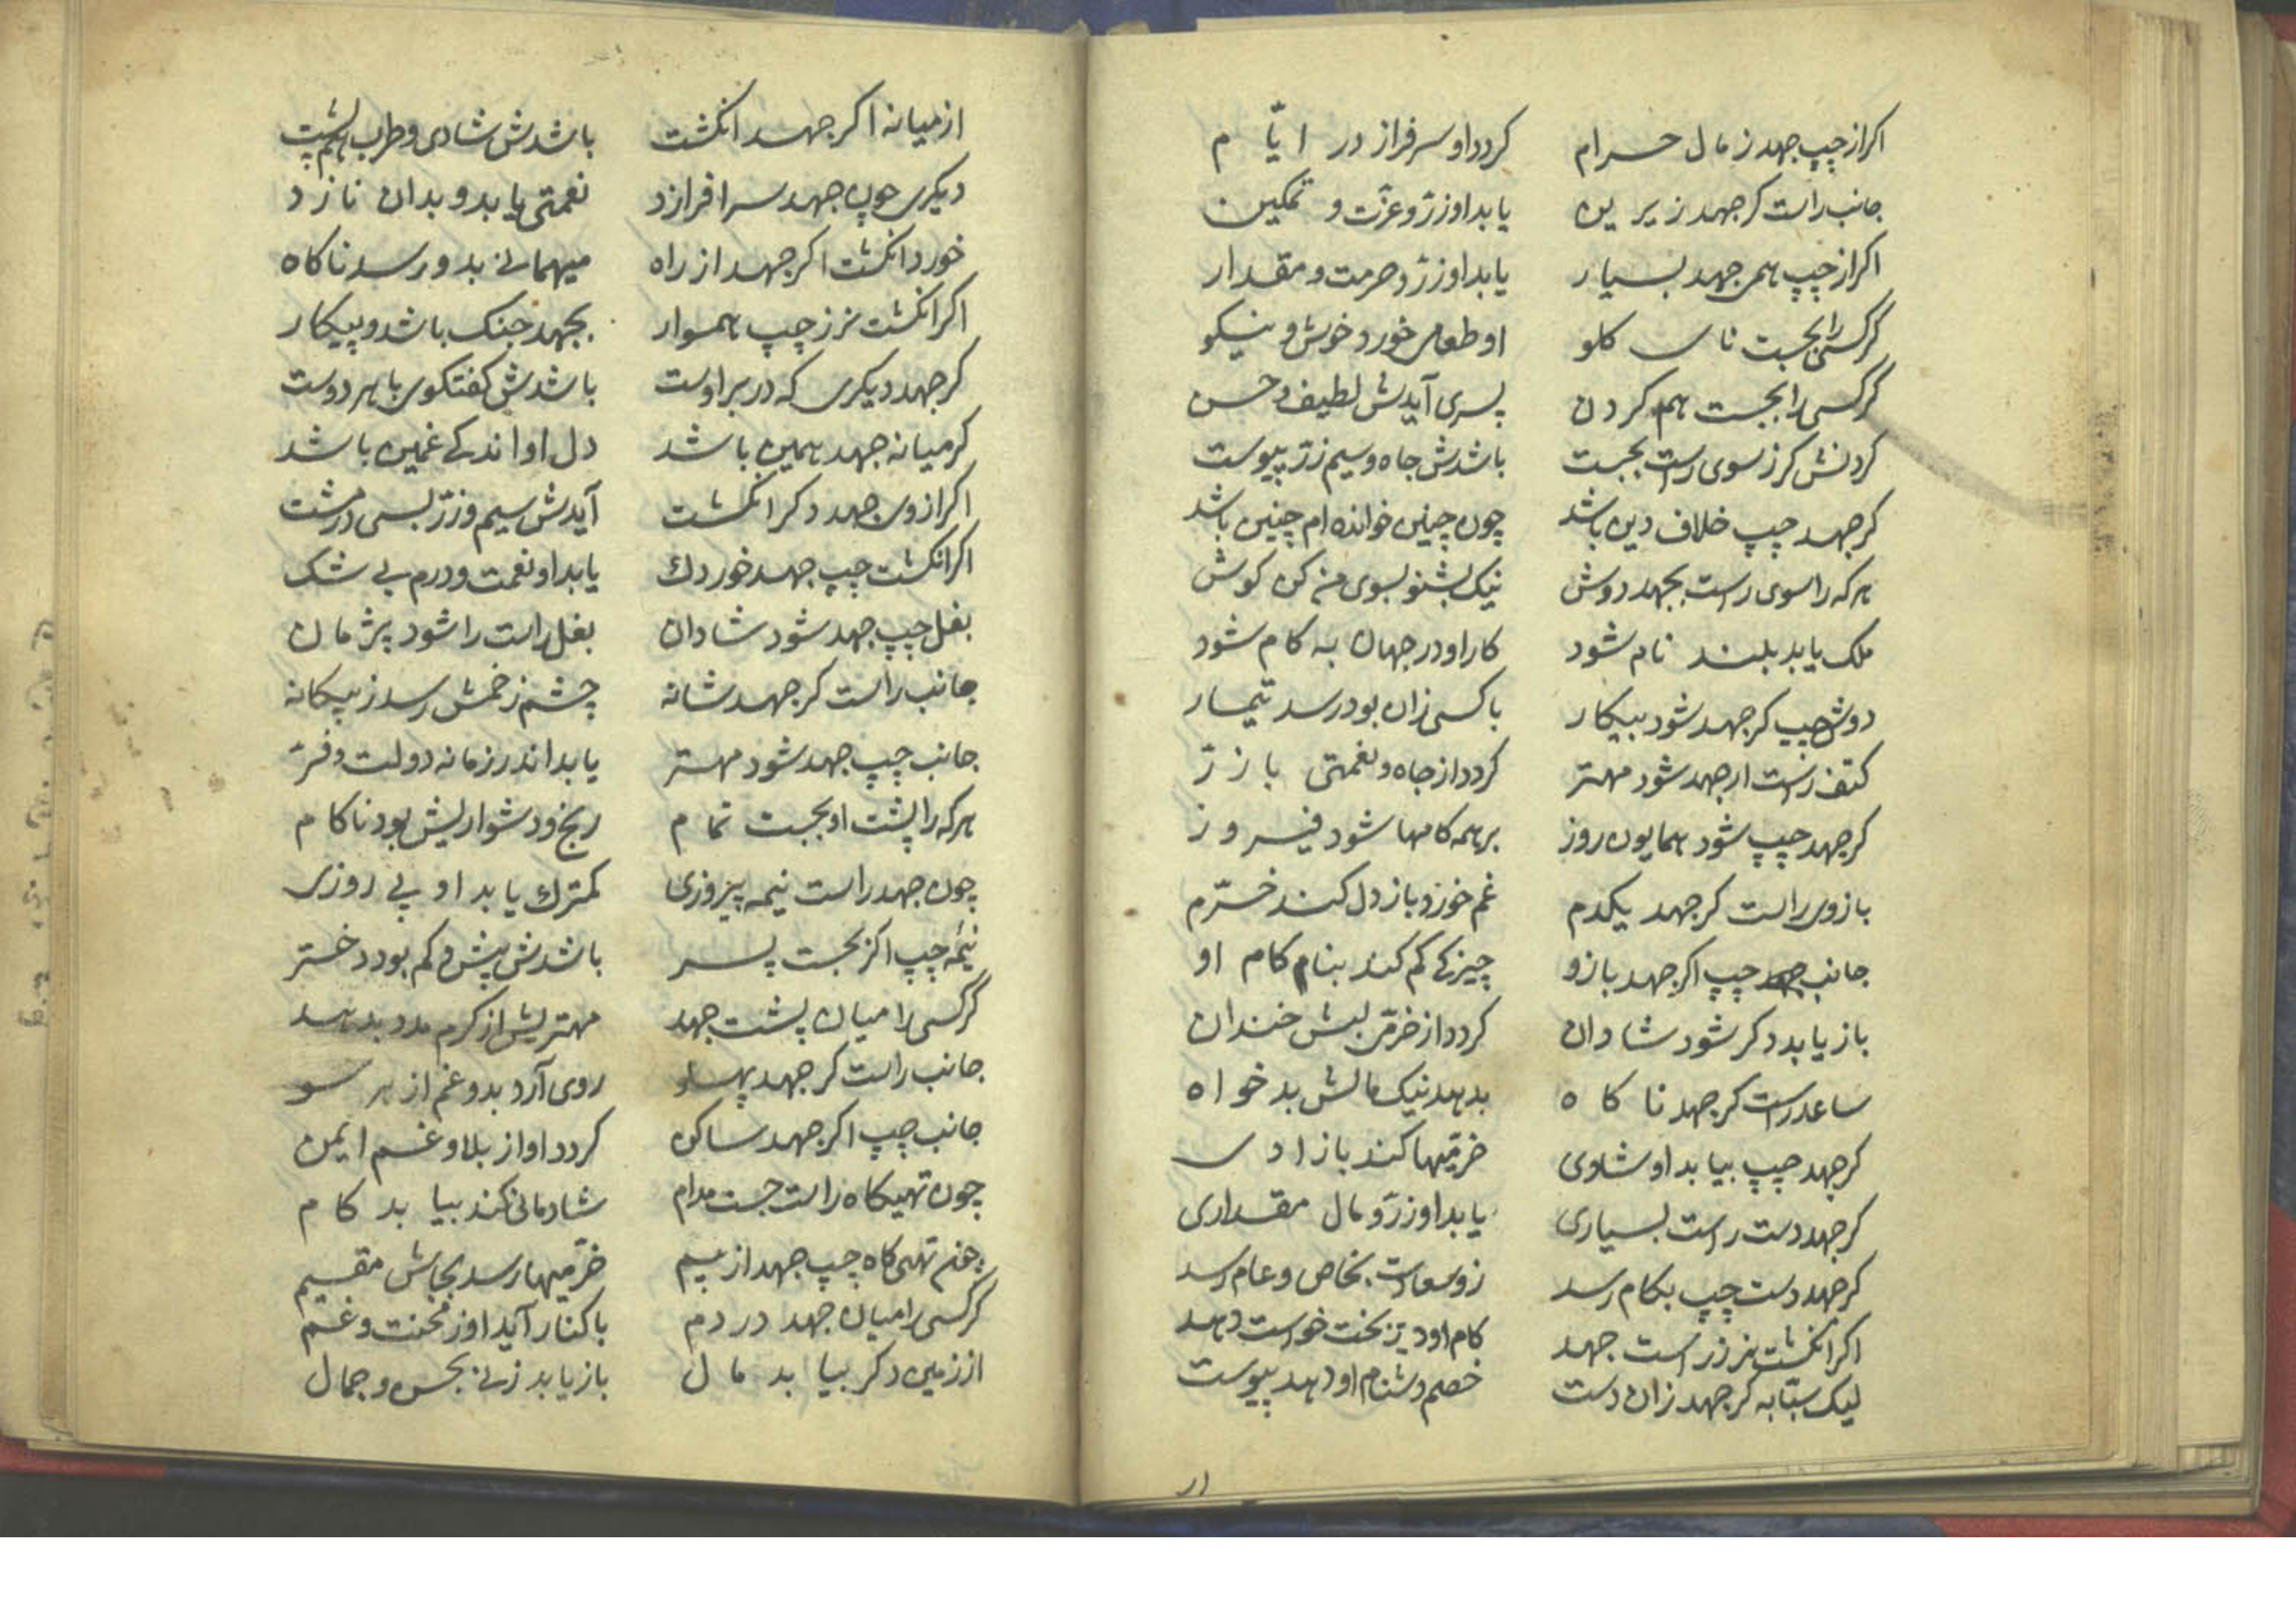 اکر از چپ جهد ز مال حرام کردد او سرفراز در ایّام
جانب راست کر جهد زیرین یابد او زرّ و عزّت و تمکین
اکر از چپ همی جهد بسیار یابد او زرّ و حرمت و مقدار
کر کسی را بجست نای کلو او طعامی خورد خوش و نیکو
کر کسی را بجست هم کردن پسری آیدش لطیف و حسن
کردنش کر ز سوی راست بجست باشدش جاه و سیم زرّ پیوست
کر جهد چپ خلاف دین باشد چون چنین خوانده ام چنین باشد
هر که را سوی راست بجهد دوش نیک بشنو بسوی من کن کوش
ملک یابد بلند نام شود کار او در جهان به کام شود
دوش چپ کر جهد شود بیکار با کسی زان بود رسد تیمار
کتف راست ار جهد شود مهتر کردد از جاه و نعمتی با زرّ
کر جهد چپ شود همایون روز بر همه کامها شود فیروز
بازوی راست کر جهد یکدم غم خورد باز دل کند خرّم
جانب چپ اکر جهد بازو چیزکی کم کند بنام کام او
باز یابد دکر شود شادان کردد از خرّمی لبش خندان
ساعد راست کر جهد ناکاه بدهد نیک مالش بدخواه
کر جهد چپ بیابد او شادی خرمیها کند باز ادی
کر جهد دست راست بسیاری یابد او زرّ و مال مقداری
کر جهد دست چپ بکام رسد زو سعادت بخاص و عام رسد
اکر انکشت نر ز راست جهد کام او دیر بخت خواست دهد
لیک سبّابه کر جهد زان دست خصم دشنام او دهد پیوست
از میانه اکر جهد انکشت باشدش شادی و طرب هم پشت
دیکری چون جهد سر افرازد نعمتی یابد و بدان نازد
خورد انکشت اکر جهد از راه میهمانی بدو رسد ناکاه
اکر انکشت نر ز چپ هموار بجهد جنک باشد و پیکار
کر جهد دیکری که در بر اوست باشدش کفتکوی با هر دوست
کر میانه جهد همین باشد دل او اندکی غمین باشد
اکر از وی جهد دکر انکشت آیدش سیم و زرّ بسی در مشت
اکر انکشت چپ جهد خوردک یابد او نعمت و درم بی شک
بغل چپ جهد شود شادان بغل راست را شود پژمان
جانب راست کر جهد شانه چشم زخمش رسد ز بیکانه
جانب چپ جهد شود مهتر یابد اندر زمانه دولت و فرّ
هر که را پشت او بجست تمام رنج و دشواریش بود ناکام
چون جهد راست نیمه پیروزی کمترک یابد او پی روزی
نیمهٔ چپ اکر بجست پسر باشدش بیش و کم بود دختر
کر کسی را میان پشت جهد مهتریش از کرم مدد بدهد
جانب راست کر جهد پهلو روی آرد بدو غم از هر سو
جانب چپ اکر جهد ساکن کردد او از بلا و غم ایمن
چون تهیکاه راست جست مدام شادمانی کند بیابد کام
چون تهی کاه چپ جهد از بیم خرّمیها رسد بجاش مقیم
کر کسی را میان جهد در دم با کنار آید او ز محنت و غم
از زمین دکر بیابد مال باز یابد زنی بحسن و جمال